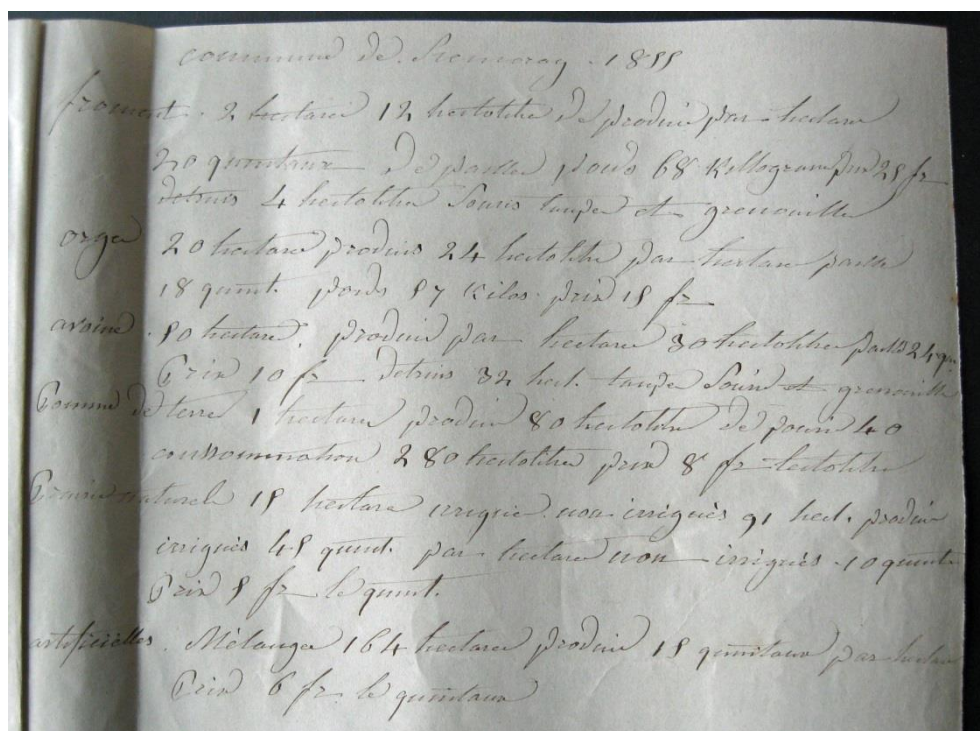 commune de Remoray . 1855
froment . 2 hectare 12 hectolitre de produit par hectare
20 quintaux de paille poids 68 Killogram prix 25 fr
detruis 4 hectolitre Souris taupe et grenouille
orge 20 hectare produis 24 hectolitre par hectare paille
18 quint. poids 57 Kilos. prix 15 fr
avoine . 50 hectare. produit par hectare 30 hectolitre paille 24 qu
Prix 10 fr detruis 32 hect. taupe Souris et grenouille
Pomme de terre 1 hectare produit 80 hectolitre de 40
consommation 280 hectolitre prix 8 fr hectolitre
Prairie naturel 15 hectare irriguée . non irrigués 91 hect. produit
irrigués 45 quint. par hectare non irrigués . 10 quint
Prix 5 fr le quint.
artificielles . Mélange 164 hectare produit 15 quintaux par hectare
Prix 6 fr le quintaux